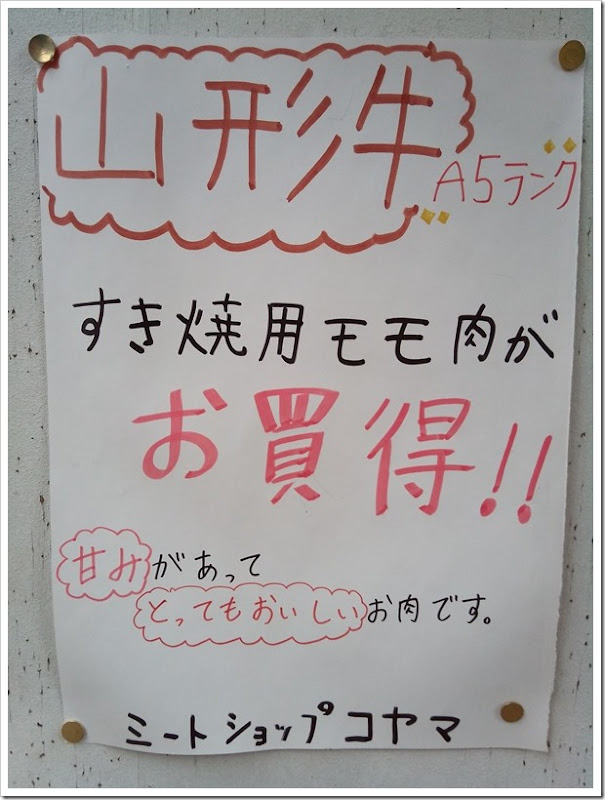 山形牛
A5ランク
すき焼用モモ肉が
お買得!!
甘みがあって
とってもおいしいお肉です。
ミートショップコヤマ